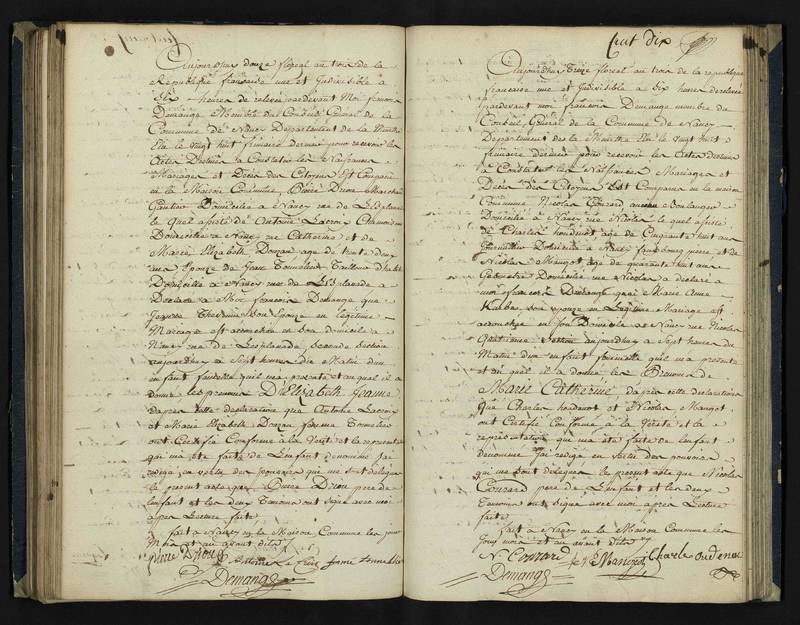 Aujourd'huy douze floreal an trois de la
Republique francaise une et Indivisible a
Six heures de relevée pardevant Moi francois
Demange Membre du Conseil General de la
Commune de Nancy Departement de la Meurthe
Elu le vingt huit frimaire dernier pour recevoir les
Actes Destinés a Constater les Naissances
Mariages et Decès des Citoyens Est Comparu
en la Maison Commune, Pierre Drou
Domicilié a Nancy rue de L'Esplanade
le quel assisté de Antoine Lacroix
Domicilié a Nancy rue Catherine et de
Marie Elizabeth Dorzan age de trente deux
ans Epouze de Jean Tailleur d'habit
Domicilié a Nancy rue de L'Esplanade a
Declaré a Moi francois Demange que
Jeanne son Epouze en legitime
Mariage est accouchée en son domicile a
Nancy rue de L'esplanade seconde section
aujourdhuy a Sept heures du Matin d'un
enfant femelle quil m'a presenté et au quel il a
donné les prenoms D'Elizabeth Jeanne
d'apres cette declaration que Antoine Lacroix
et Marie Elizabeth Dorzan femme
ont Certifié Conforme a la Verité et la representation
qui m'a été faite de L'enfant denommé J'ai
redigé en vertu des pouvoirs qui me sont delegués
le present acte que Pierre Drou pere de
lenfant et les deux Temoins ont signé avec moi
apres Lecture faite
fait a Nancy en la Maison Commune les jour
Mois et an avant dits
pierre Drou Antoine
Demange
Cent Dix
Aujourdhuy Treize floreal an trois de la republique
francaise une et Indivisible a Six heures de relevée
pardevant moi francois Demange membre du
Conseil General de la Commune de Nancy
Departement de la Meurthe Elu le vingt huit
frimaire dernier pour recevoir les Actes Destinés
a Constater les Naissances Mariages et
Decès des Citoyens Est Comparu en la maison
Commune Nicolas Conrard Boulanger
Domicilié a Nancy rue Nicolas le quel assisté
de Charles houdenot age de Cinquante huit ans
Domicilié a Nancy fauxbourg et de
Nicolas Mangot age de quarante huit ans
Domicilié rue Nicolas a declaré a
moi francois Demange que Marie Anne
son epouze en Legitime Mariage est
accouchée en son Domicile a Nancy rue Nicolas
Quatrieme Section aujourdhuy a Sept heures du
Matin d'un enfant femelle quil m'a presenté
et au quel il a donné les Prenoms de
Marie Catherine d'après cette declaration
Que Charles houdenot et Nicolas Mangot
ont Certifié Conforme a la Verité et la
representation qui m'a été faite de Lenfant
denommé J'ai redigé en vertu des pouvoirs
qui me sont delegués le present acte que Nicolas
Conrard pere de L'enfant et les deux
Temoins ont signé avec moi apres Lecture
faite
fait a Nancy en la Maison Commune les
Jour mois et an avant dits
N. Conrard N Mangot Charle
Demange